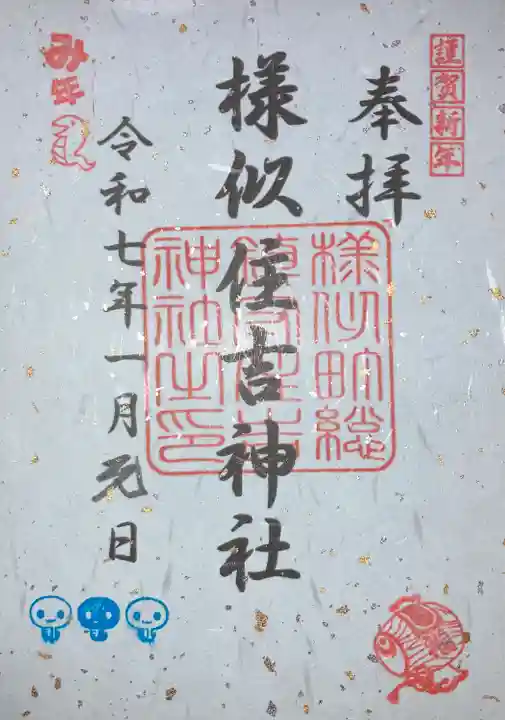 謹賀新年
奉拝
様似町総
鎮守住吉
神社之印
様似住吉神社
令和七年一月元日
み年